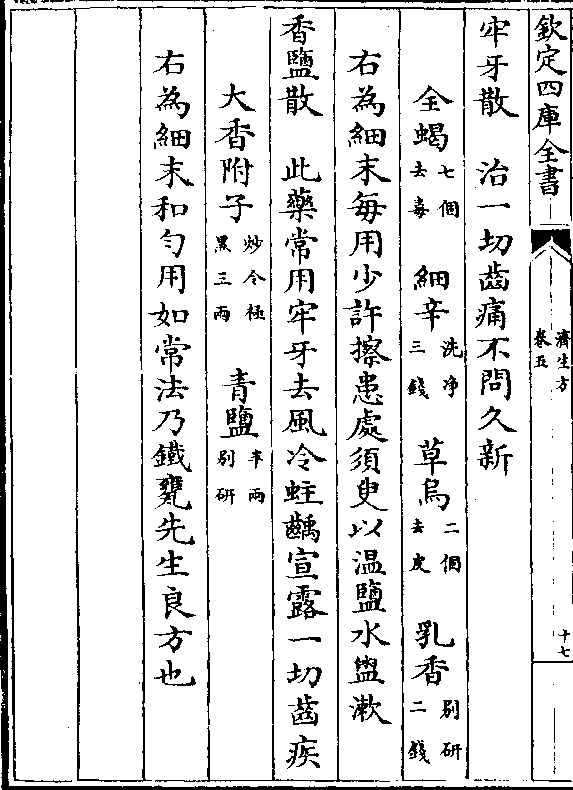 欽定四庫全書
濟生方
卷五
十七
牢牙散　治一切齒痛不問久新
全蝎七個去毒　細辛洗净三錢　草烏二個去皮　乳香别研二錢
右為細末每用少許擦患處須臾以温鹽水盥漱
香鹽散　此藥常用牢牙去風冷蛀齲宣露一切齒疾
大香附子炒令極黑三兩　青鹽半兩别研
右為細末和勻用如常法乃鐵甕先生良方也